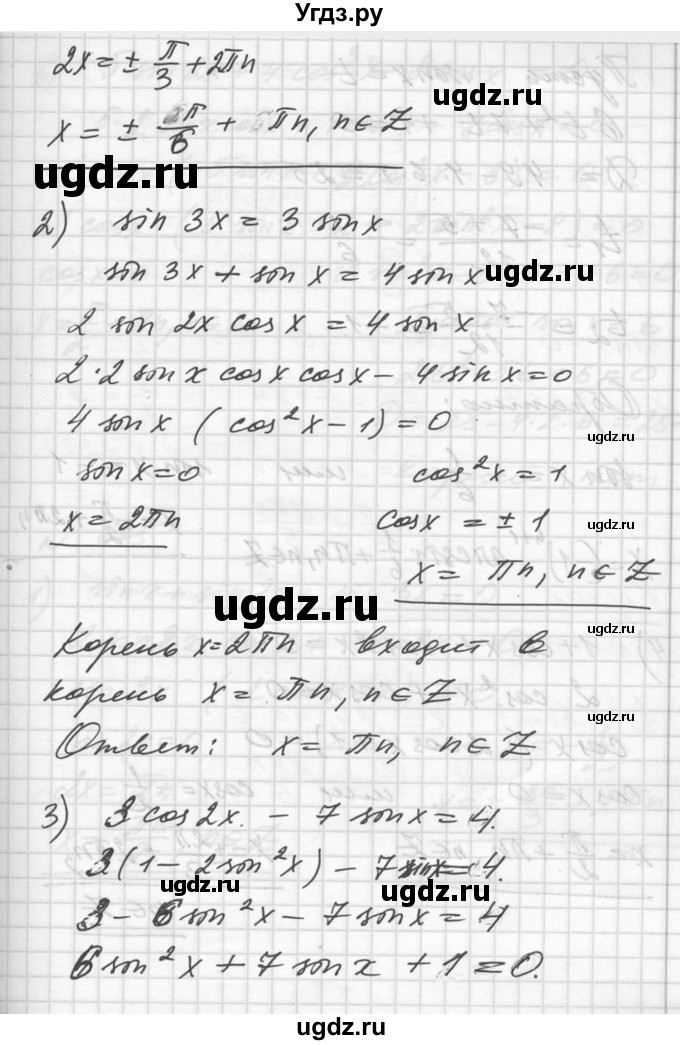 Угдз.ру
2x = ± π/3 + 2πn
x = ± π/6 + πn, n ∈ Z
ugdz.ru
ugdz.ru
2) sin 3x = 3 sin x
sin 3x + sin x = 4 sin x
ugdz.ru
2 sin 2x cos x = 4 sin x
ugdz.ru
2·2 sin x cos x cos x – 4 sin x = 0
4 sin x (cos²x – 1) = 0
ugdz.ru
sin x = 0 cos²x = 1
x = 2πn cos x = ± 1
ugdz.ru
x = πn, n ∈ Z
ugdz.ru
ugdz.ru
Корень x = 2πn входит в
корень x = πn, n ∈ Z
ugdz.ru
Ответ: x = πn, n ∈ Z
3) 3 cos 2x – 7 sin x = 4.
3(1 – 2 sin²x) – 7 sin x = 4.
ugdz.ru
ugdz.ru
3 – 6 sin²x – 7 sin x = 4
6 sin²x + 7 sin x + 1 = 0.
ugdz.ru